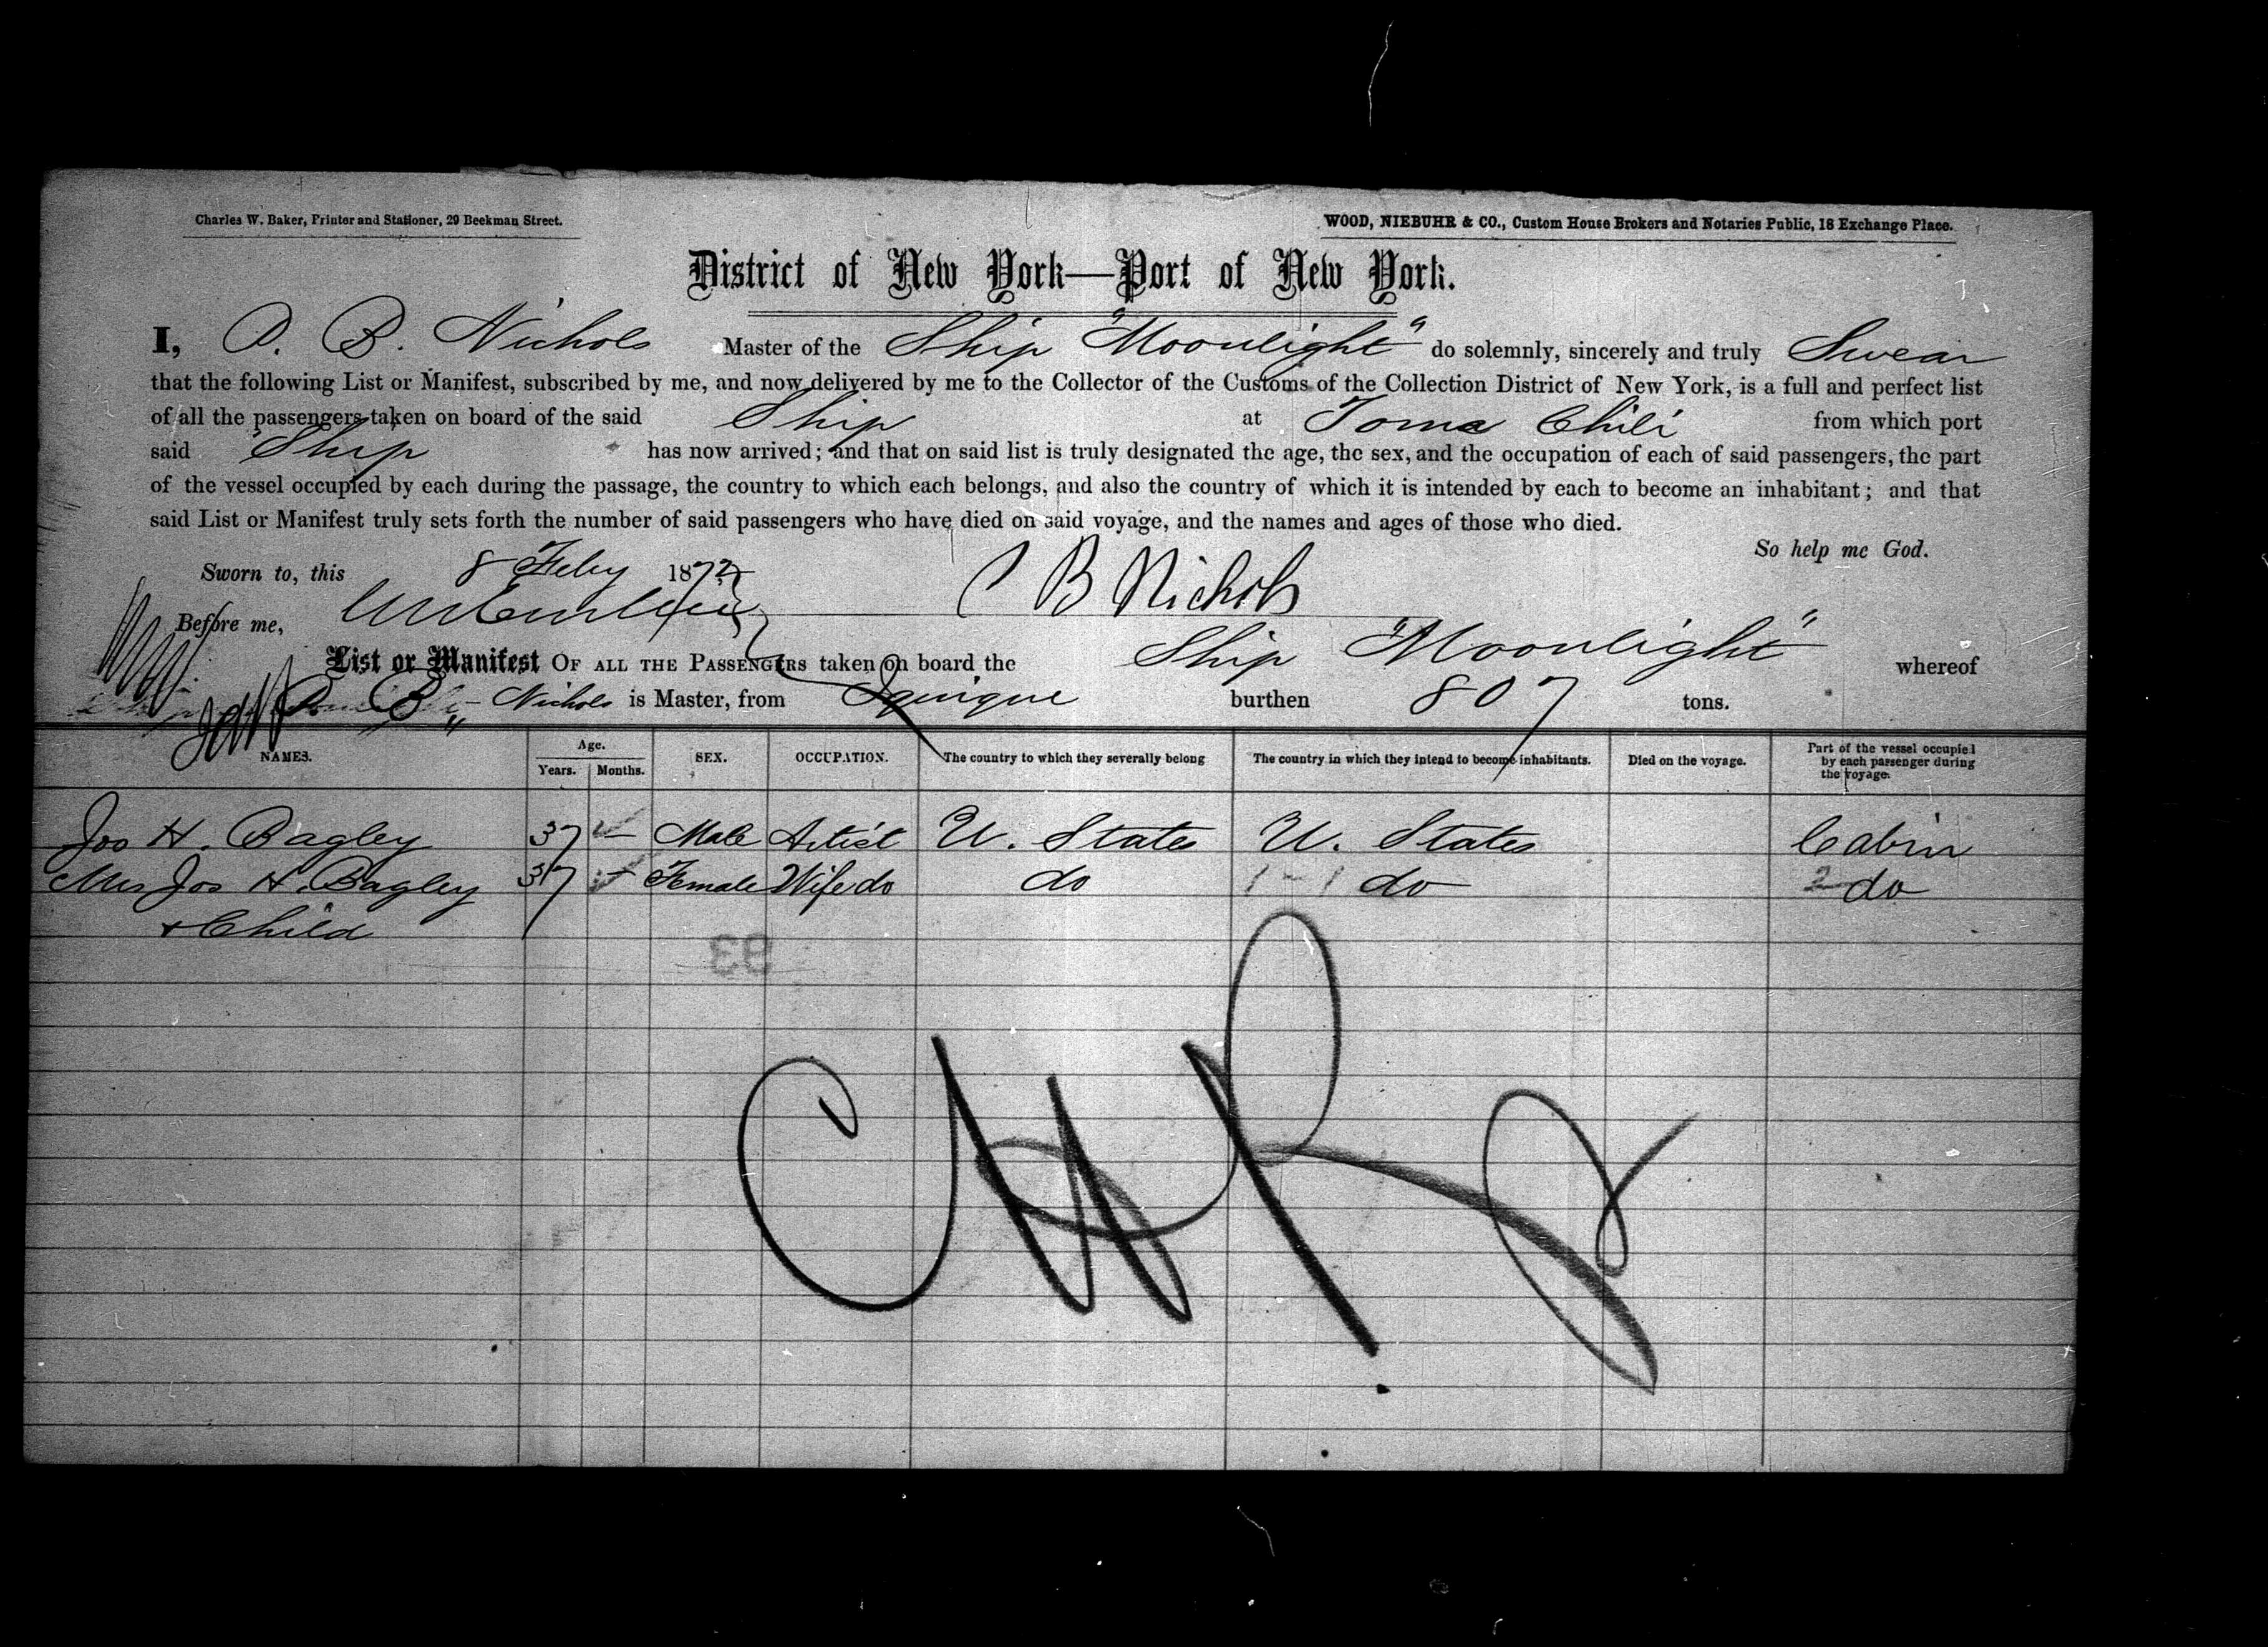 Charles W. Baker, Printer and Stationer, 29 Beekman Street.
WOOD, NIEBUHR & CO., Custom House Brokers and Notaries Public, 18 Exchange Place.
District of New York—Port of New York.
I, P. B. Nichols Master of the Ship "Moonlight" do solemnly, sincerely and truly Swear
that the following List or Manifest, subscribed by me, and now delivered by me to the Collector of the Customs of the Collection District of New York, is a full and perfect list
of all the passengers taken on board of the said Ship at Tome Chili from which port
said Ship has now arrived; and that on said list is truly designated the age, the sex, and the occupation of each of said passengers, the part
of the vessel occupied by each during the passage, the country to which each belongs, and also the country of which it is intended by each to become an inhabitant; and that
said List or Manifest truly sets forth the number of said passengers who have died on said voyage, and the names and ages of those who died.
So help me God.
Sworn to, this 8 Feby 1872
B Nichols
Before me,
List or Manifest OF ALL THE PASSENGERS taken on board the Ship "Moonlight" whereof
B Nichols is Master, from Iquique burthen 807 tons.
NAMES. Age. Years. Months. SEX. OCCUPATION. The country to which they severally belong The country in which they intend to become inhabitants. Died on the voyage. Part of the vessel occupied by each passenger during the voyage.
Jos H. Bagley 37 – Male Artist U. States U. States Cabin
Mrs Jos H. Bagley 37 – Female Wife do do do do
+ Child
93